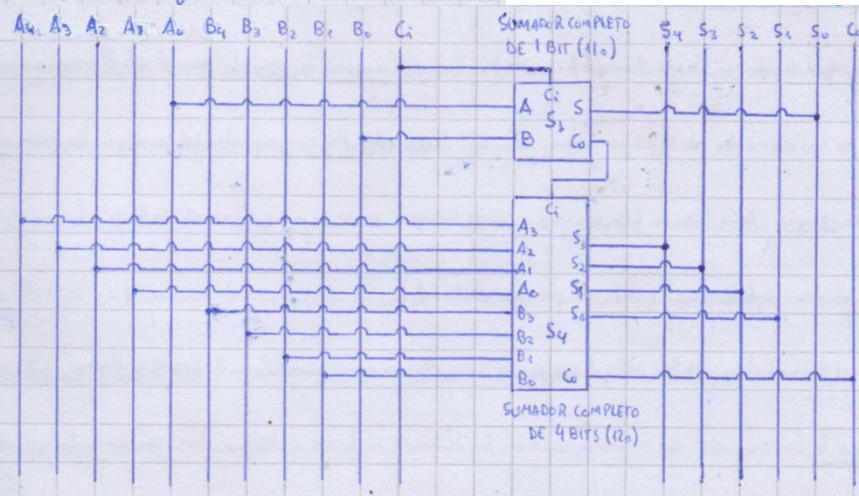 A4 A3 A2 A1 A0 B4 B3 B2 B1 B0 Ci
SUMADOR COMPLETO
DE 1 BIT (I10)
S4 S3 S2 S1 S0 Co
Ci
A S
S1
B Co
Ci
A3
A2 S3
A1 S2
A0 S1
B3 S0
B2 S4
B1
B0 Co
SUMADOR COMPLETO
DE 4 BITS